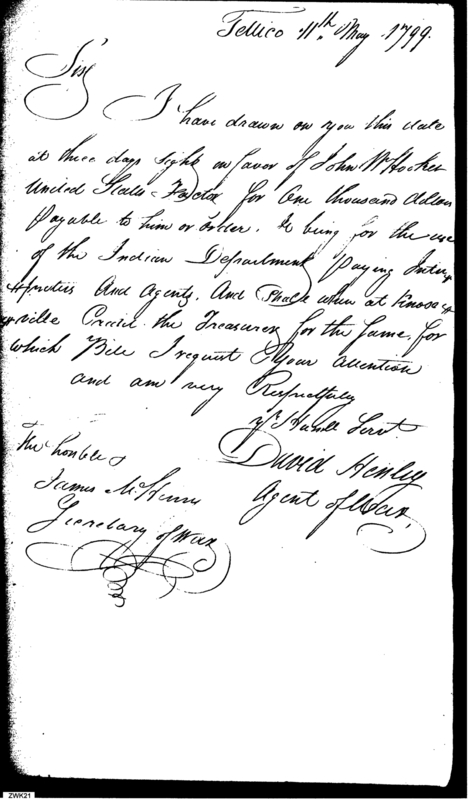 Tellico 11th May 1799.
Sir
I have drawn on you this date
at three days sight in favor of John W Hooker
United States Factor for One thousand dollars
Payable to him or order. It being for the use
of the Indian Department Paying Inter=
=preters And Agents. And shall when at Knox=
=ville Credit the Treasurer for the same, for
which Bill I request Your attention
and am very Respectfully
yr Humle Servt.
David Henley
Agent of War.
The honble
James McHenry
Secretary of War
ZWK21